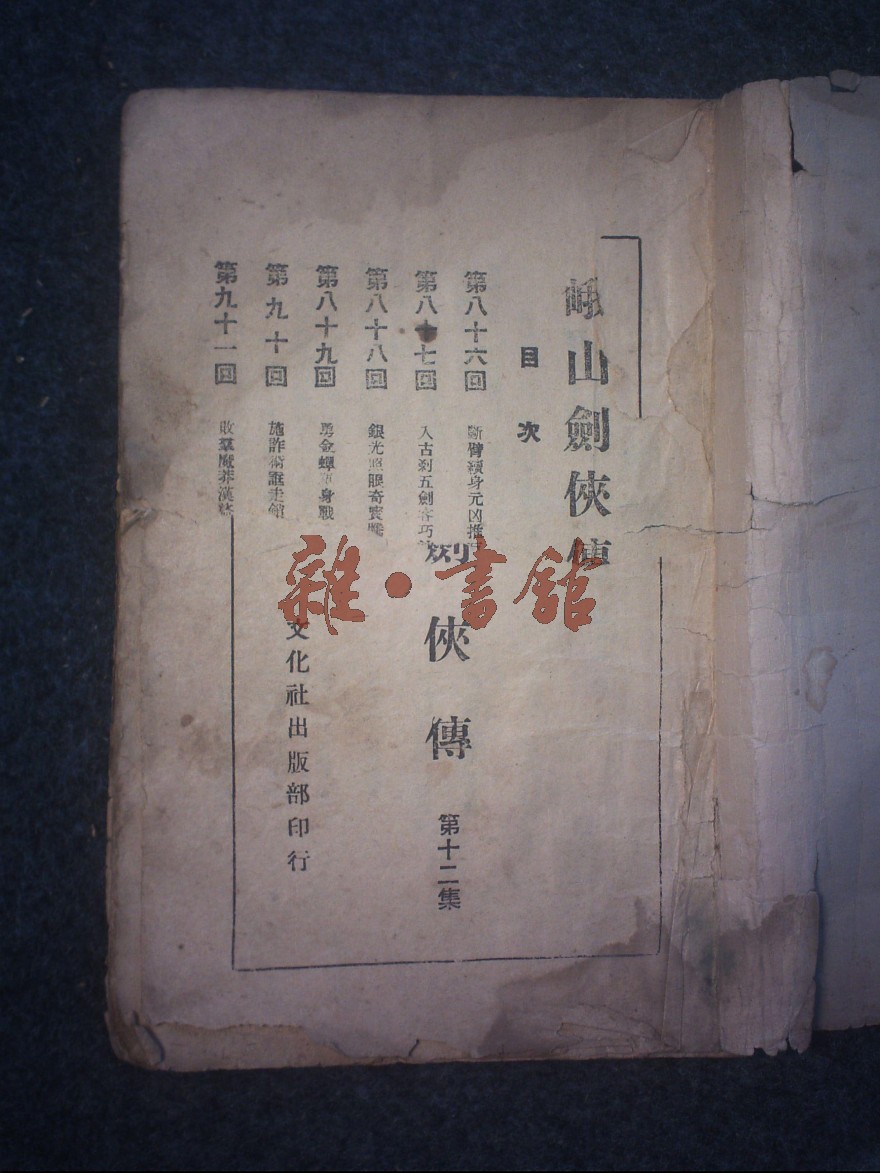 峨山劍俠傳
目次
第八十六回 斷臂續身元凶推
第八十七回 入古刹五劍客巧
第八十八回 銀光照眼奇寶騰
第八十九回 勇金蟬 身戰
第九十回 施詐術誑走
第九十一回 收羣魔莽漢
劍俠傳
第十二集
文化社出版部印行
雜·書舘